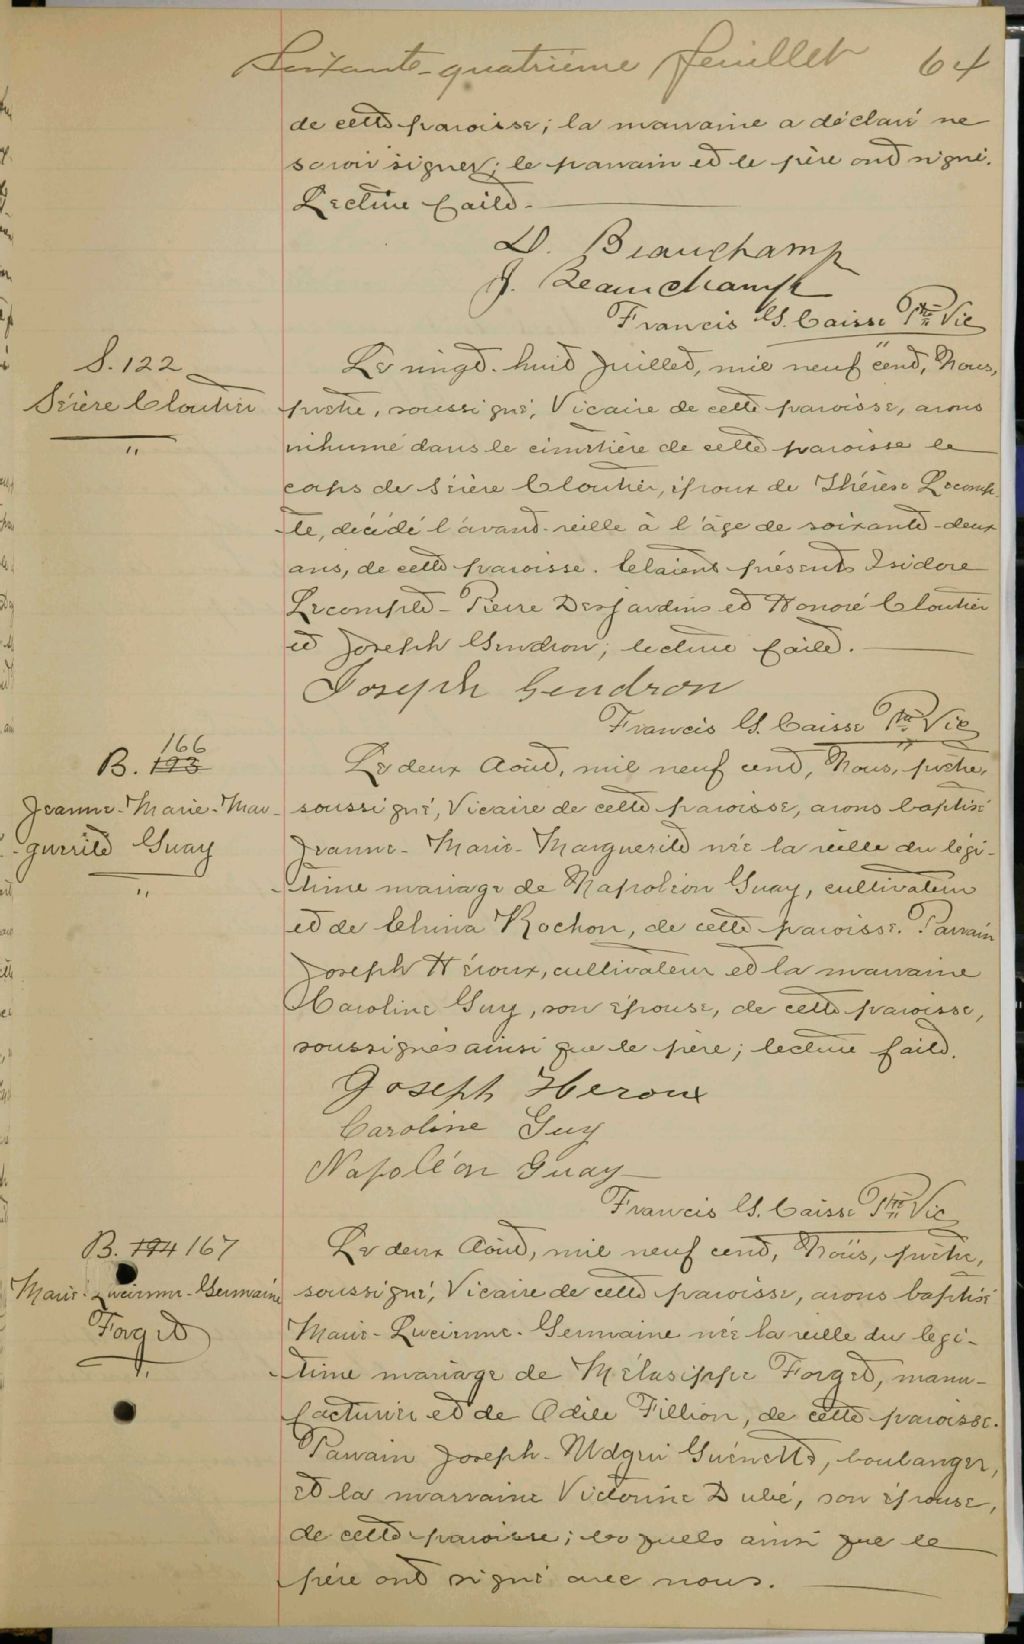 Soixante-quatrième feuillet 64
de cette paroisse; la marraine a déclaré ne
savoir signer; le parrain et le père ont signé.
Lecture faite.
D. Beauchamp
J. Beauchamp
Francis G. Caisse Ptre Vic
S. 122
Sévère Cloutier
Le vingt-huit Juillet, mil neuf cent, Nous,
prêtre, soussigné, Vicaire de cette paroisse, avons
inhumé dans le cimetière de cette paroisse le
corps de Sévère Cloutier, époux de Thérèse Lecomp-
-te, décédé l'avant-veille à l'âge de soixante-deux
ans, de cette paroisse. Etaient présents Isidore
Lecompte - Pierre Desjardins et Honoré Cloutier
et Joseph Gendron; lecture faite.
Joseph Gendron
Francis G. Caisse Ptre Vic
166
B. 193
Jeanne-Marie-Mar-
-guerite Guay
Le deux Août, mil neuf cent, Nous, prêtre,
soussigné, Vicaire de cette paroisse, avons baptisé
Jeanne-Marie-Marguerite née la veille du légi-
-time mariage de Napoléon Guay, cultivateur
et de Rochon, de cette paroisse. Parrain
Joseph Héroux, cultivateur et la marraine
Caroline Guy, son épouse, de cette paroisse,
soussignés ainsi que le père; lecture faite.
Joseph Heroux
Caroline Guy
Napoléon Guay
Francis G. Caisse Ptre Vic
B. 194 167
Marie-Lucienne-Germaine
Forget
Le deux Août, mil neuf cent, Nous, prêtre,
soussigné, Vicaire de cette paroisse, avons baptisé
Marie-Lucienne-Germaine née la veille du legi-
-time mariage de Mélasippe Forget, manu-
facturier et de Odile Fillion, de cette paroisse.
Parrain Joseph Guénette, boulanger,
et la marraine Victorine Dubé, son épouse,
de cette paroisse; lesquels ainsi que le
père ont signé avec nous.